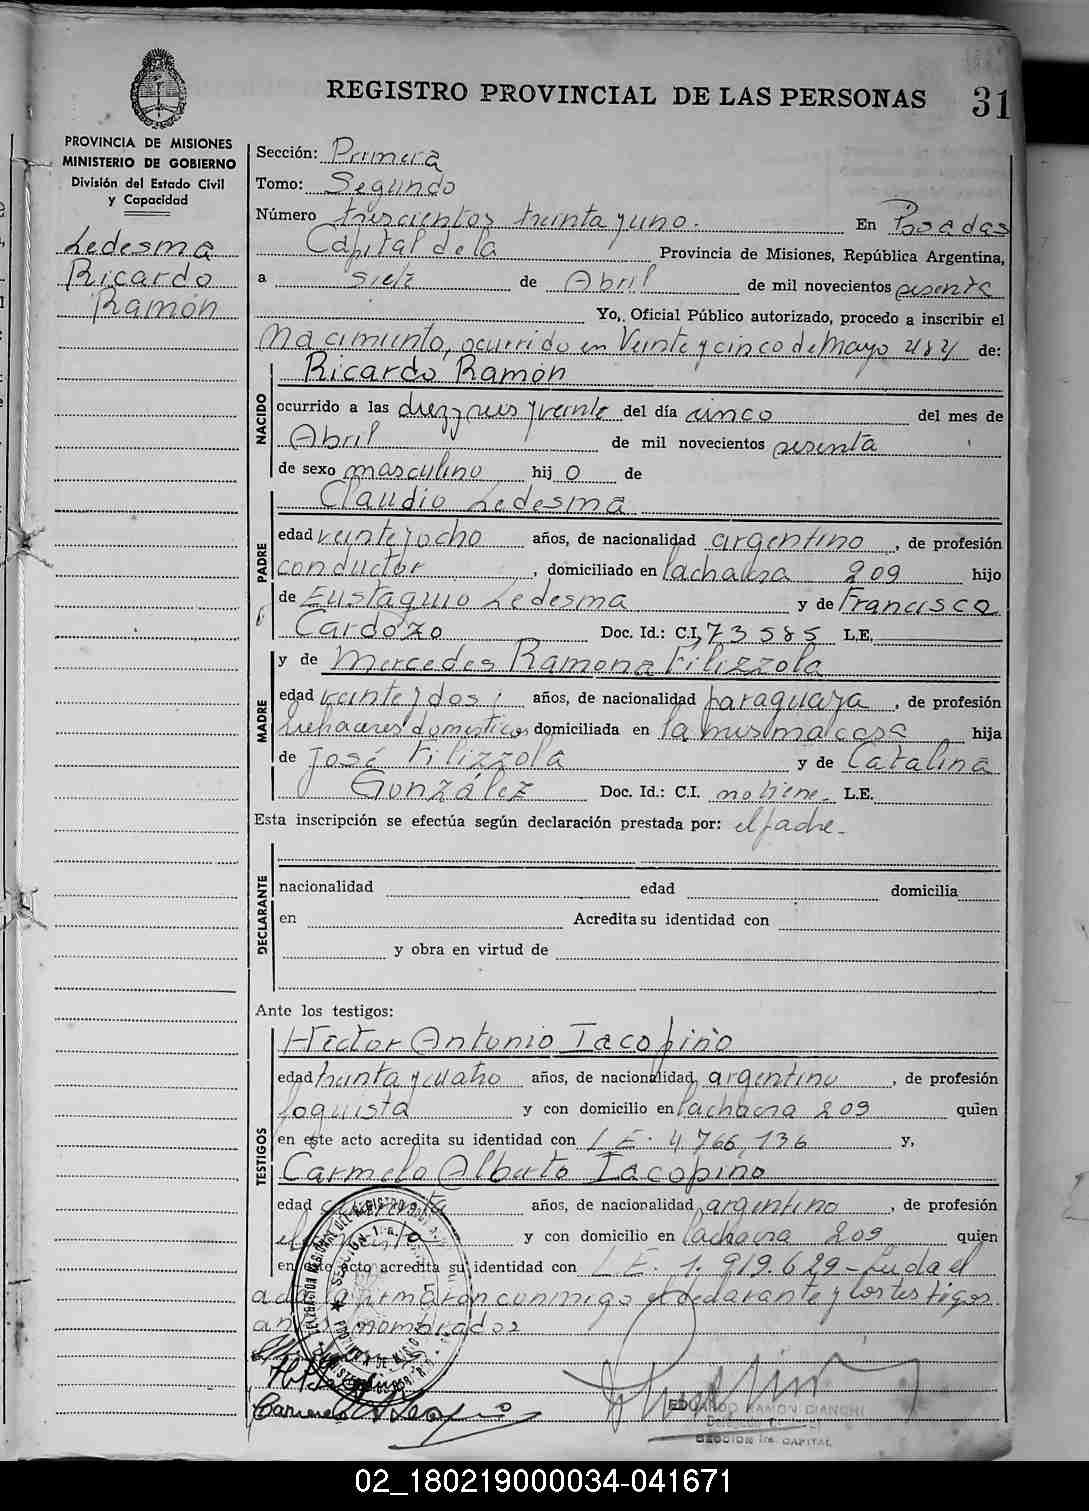 REGISTRO PROVINCIAL DE LAS PERSONAS 31
PROVINCIA DE MISIONES
MINISTERIO DE GOBIERNO
División del Estado Civil
y Capacidad
Ledesma
Ricardo
Ramón
Sección: Primera
Tomo: Segundo
Número trescientos treinta y uno. En Posadas
Capital de la Provincia de Misiones, República Argentina,
a siete de Abril de mil novecientos sesenta
Yo, Oficial Público autorizado, procedo a inscribir el
Nacimiento, ocurrido en Veinte y cinco de Mayo 484 de:
NACIDO
Ricardo Ramón
ocurrido a las diez y seis y veinte del día cinco del mes de
Abril de mil novecientos sesenta
de sexo masculino hij o de
PADRE
Claudio Ledesma
edad veinte y ocho años, de nacionalidad argentino, de profesión
conductor, domiciliado en la chacra 209 hijo
de Eustaquio Ledesma y de Francisca
Cardozo Doc. Id.: C.I. 73585 L.E.
MADRE
y de Mercedes Ramona Filizzola
edad veinte y dos años, de nacionalidad paraguaya, de profesión
quehaceres domesticos domiciliada en la misma casa hija
de José Filizzola y de Catalina
González Doc. Id.: C.I. no tiene L.E.
Esta inscripción se efectúa según declaración prestada por: el padre.
DECLARANTE
nacionalidad edad domicilia
en Acredita su identidad con
y obra en virtud de
Ante los testigos:
TESTIGOS
Héctor Antonio Iacopino
edad treinta y cuatro años, de nacionalidad argentino, de profesión
foguista y con domicilio en la chacra 209 quien
en este acto acredita su identidad con L E. 4.766.136 y,
Carmelo Alberto Iacopino
edad años, de nacionalidad argentino, de profesión
y con domicilio en la chacra 209 quien
en este acto acredita su identidad con L E. 1.919.629 - Leida el
acta la firmaron conmigo el declarante y los testigos
antes nombrados
EDUARDO RAMON BIANCHI
SECCION 1ra. CAPITAL
02_180219000034-041671